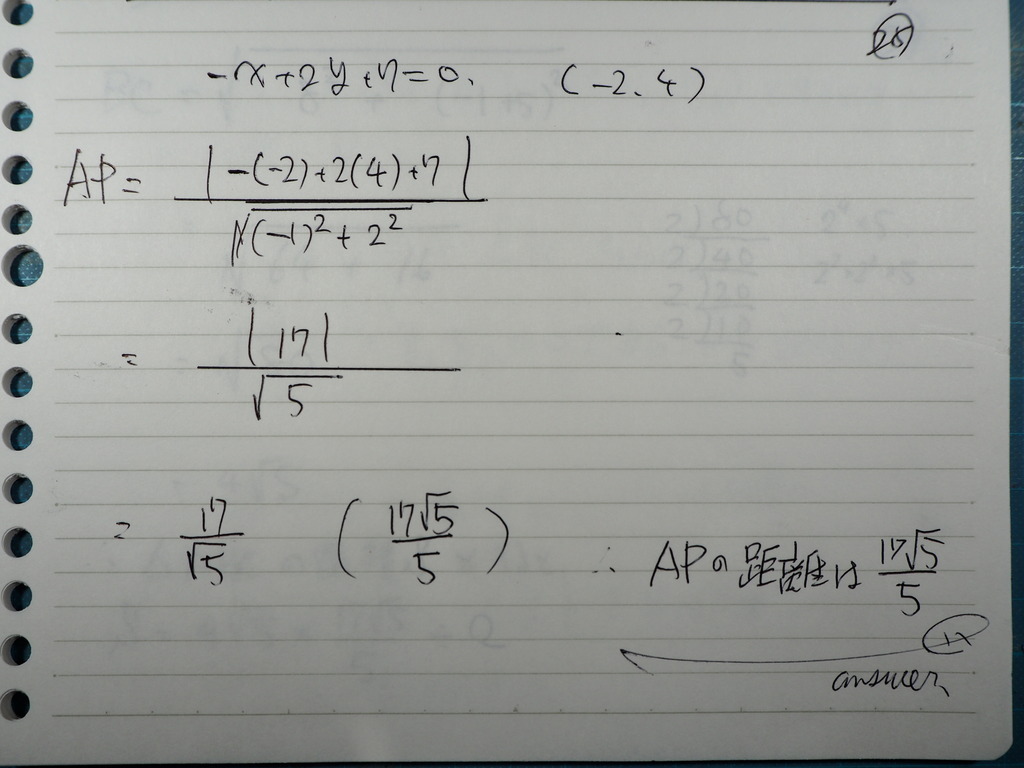 -x+2y+7=0. (-2.4)
AP= |-(-2)+2(4)+7| / √(-1)²+2²
= |17| / √5
= 17/√5 (17√5/5) ∴ APの距離は 17√5/5
answer